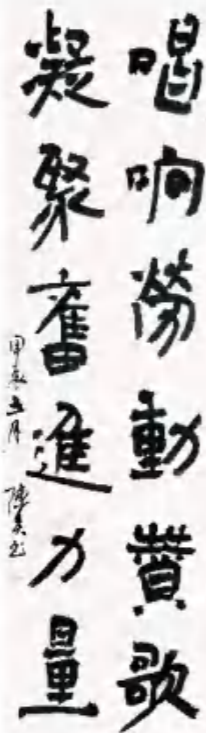 唱响勞動賛歌
凝聚奮進力量
甲辰五月